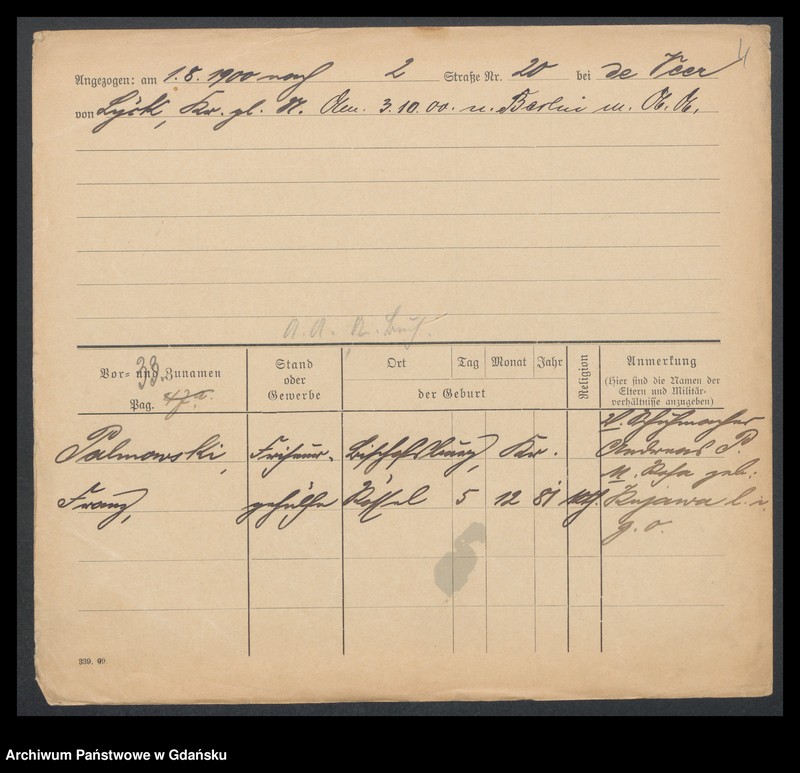 4
Angezogen: am 1.8.1900 nach 2 Straße Nr. 20 bei de Veer
von Lyck, Kr. gl. N. Am. 3.10.00. n. Berlin m.
A. A. Buch.
Vor- und Zunamen
33.
Pag. 47a.
Stand oder Gewerbe
Ort Tag Monat Jahr
der Geburt
Religion
Anmerkung
(Hier sind die Namen der
Eltern und Militär-
verhältnisse anzugeben)
Palmowski,
Franz,
Friseur-
gehülfe
Bischofsburg, Kr.
Rössel 5 12 81 kth.
V. Schuhmacher
Andreas P.
M. Rosa geb.
Kujawa l. i.
g. O.
339. 99.
Archiwum Państwowe w Gdańsku